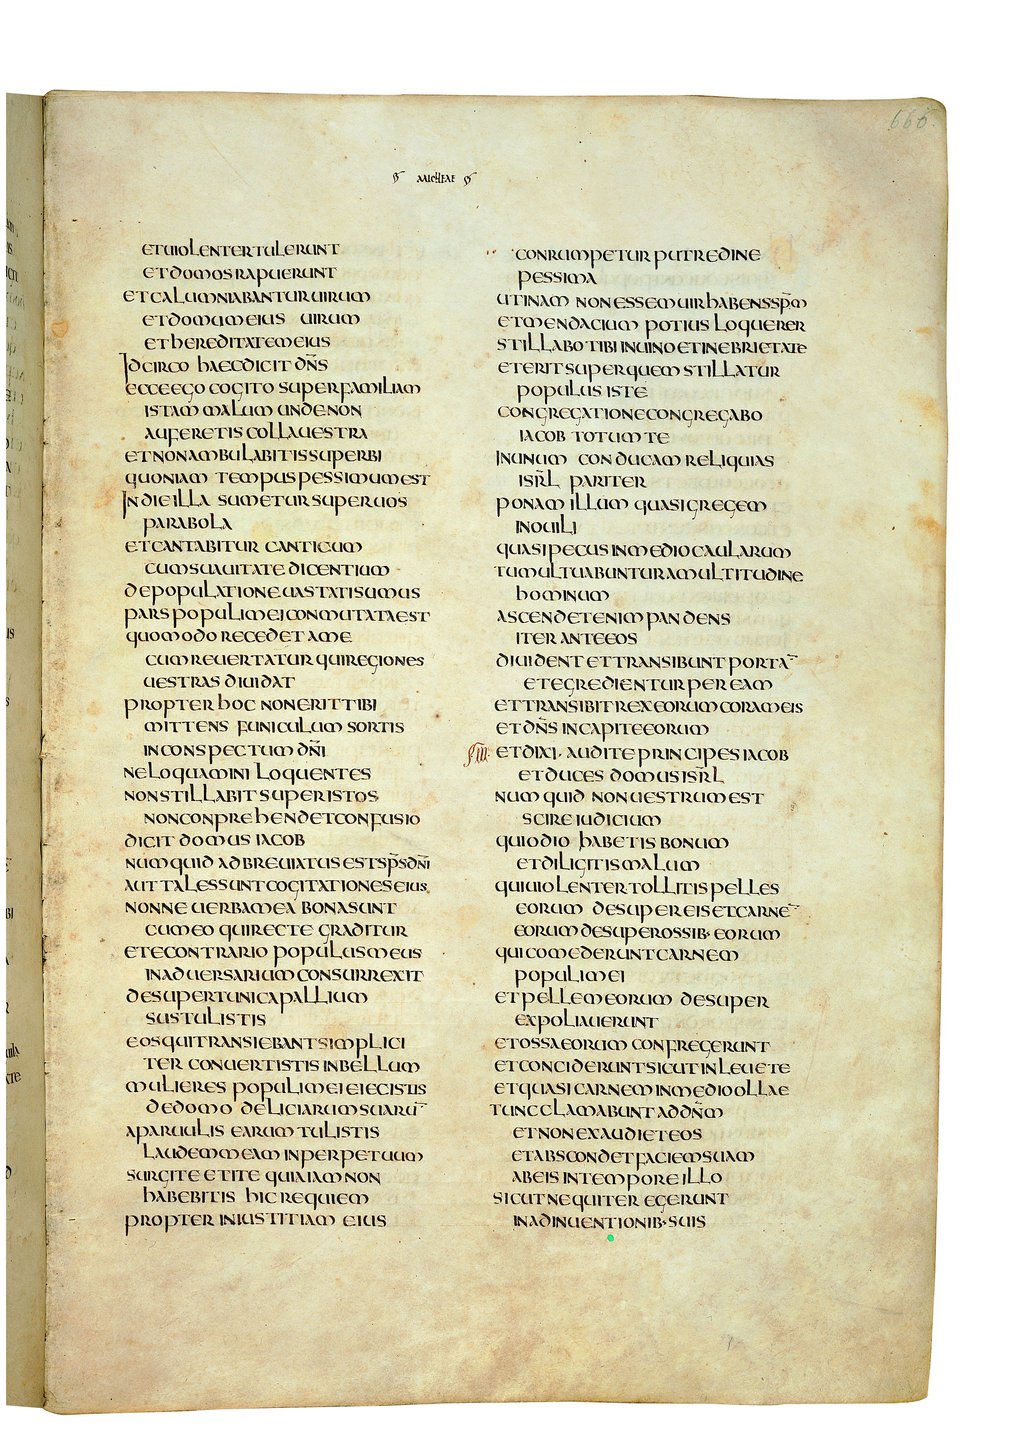 666.
MICHEAE
ET UIOLENTER TULERUNT
ET DOMOS RAPUERUNT
ET CALUMNIABANTUR UIRUM
ET DOMUM EIUS UIRUM
ET HEREDITATEM EIUS
IDCIRCO HAEC DICIT DN̄S
ECCE EGO COGITO SUPER FAMILIAM
ISTAM MALUM UNDE NON
AUFERETIS COLLA UESTRA
ET NON AMBULABITIS SUPERBI
QUONIAM TEMPUS PESSIMUM EST
IN DIE ILLA SUMETUR SUPER UOS
PARABOLA
ET CANTABITUR CANTICUM
CUM SUAUITATE DICENTIUM
DEPOPULATIONE UASTATI SUMUS
PARS POPULI MEI CONMUTATA EST
QUOMODO RECEDET A ME
CUM REUERTATUR QUI REGIONES
UESTRAS DIUIDAT
PROPTER HOC NON ERIT TIBI
MITTENS FUNICULUM SORTIS
IN CONSPECTUM DN̄I
NE LOQUAMINI LOQUENTES
NON STILLABIT SUPER ISTOS
NON CONPREHENDET CONFUSIO
DICIT DOMUS IACOB
NUMQUID ADBREUIATUS EST SP̄S DN̄I
AUT TALES SUNT COGITATIONES EIUS
NONNE UERBA MEA BONA SUNT
CUM EO QUI RECTE GRADITUR
ET E CONTRARIO POPULUS MEUS
IN ADUERSARIUM CONSURREXIT
DESUPER TUNICA PALLIUM
SUSTULISTIS
EOS QUI TRANSIEBANT SIMPLICI
TER CONUERTISTIS IN BELLUM
MULIERES POPULI MEI EIECISTIS
DE DOMO DELICIARUM SUARU¯
A PARUULIS EARUM TULISTIS
LAUDEM MEAM IN PERPETUUM
SURGITE ET ITE QUIA IAM NON
HABEBITIS HIC REQUIEM
PROPTER INIUSTITIAM EIUS
CONRUMPETUR PUTREDINE
PESSIMA
UTINAM NON ESSEM UIR HABENS SP̄M
ET MENDACIUM POTIUS LOQUERER
STILLABO TIBI IN UINO ET IN EBRIETATE
ET ERIT SUPER QUEM STILLATUR
POPULUS ISTE
CONGREGATIONE CONGREGABO
IACOB TOTUM TE
IN UNUM CONDUCAM RELIQUIAS
ISR̄L PARITER
PONAM ILLUM QUASI GREGEM
IN OUILI
QUASI PECUS IN MEDIO CAULARUM
TUMULTUABUNTUR A MULTITUDINE
HOMINUM
ASCENDET ENIM PANDENS
ITER ANTE EOS
DIUIDENT ET TRANSIBUNT PORTA¯
ET EGREDIENTUR PER EAM
ET TRANSIBIT REX EORUM CORAM EIS
ET DN̄S IN CAPITE EORUM
III ET DIXI · AUDITE PRINCIPES IACOB
ET DUCES DOMUS ISR̄L
NUMQUID NON UESTRUM EST
SCIRE IUDICIUM
QUI ODIO HABETIS BONUM
ET DILIGITIS MALUM
QUI UIOLENTER TOLLITIS PELLES
EORUM DESUPER EIS ET CARNE¯
EORUM DESUPER OSSIB· EORUM
QUI COMEDERUNT CARNEM
POPULI MEI
ET PELLEM EORUM DESUPER
EXPOLIAUERUNT
ET OSSA EORUM CONFREGERUNT
ET CONCIDERUNT SICUT IN LEUETE
ET QUASI CARNEM IN MEDIO OLLAE
TUNC CLAMABUNT AD DN̄M
ET NON EXAUDIET EOS
ET ABSCONDET FACIEM SUAM
AB EIS IN TEMPORE ILLO
SICUT NEQUITER EGERUNT
IN ADINUENTIONIB· SUIS